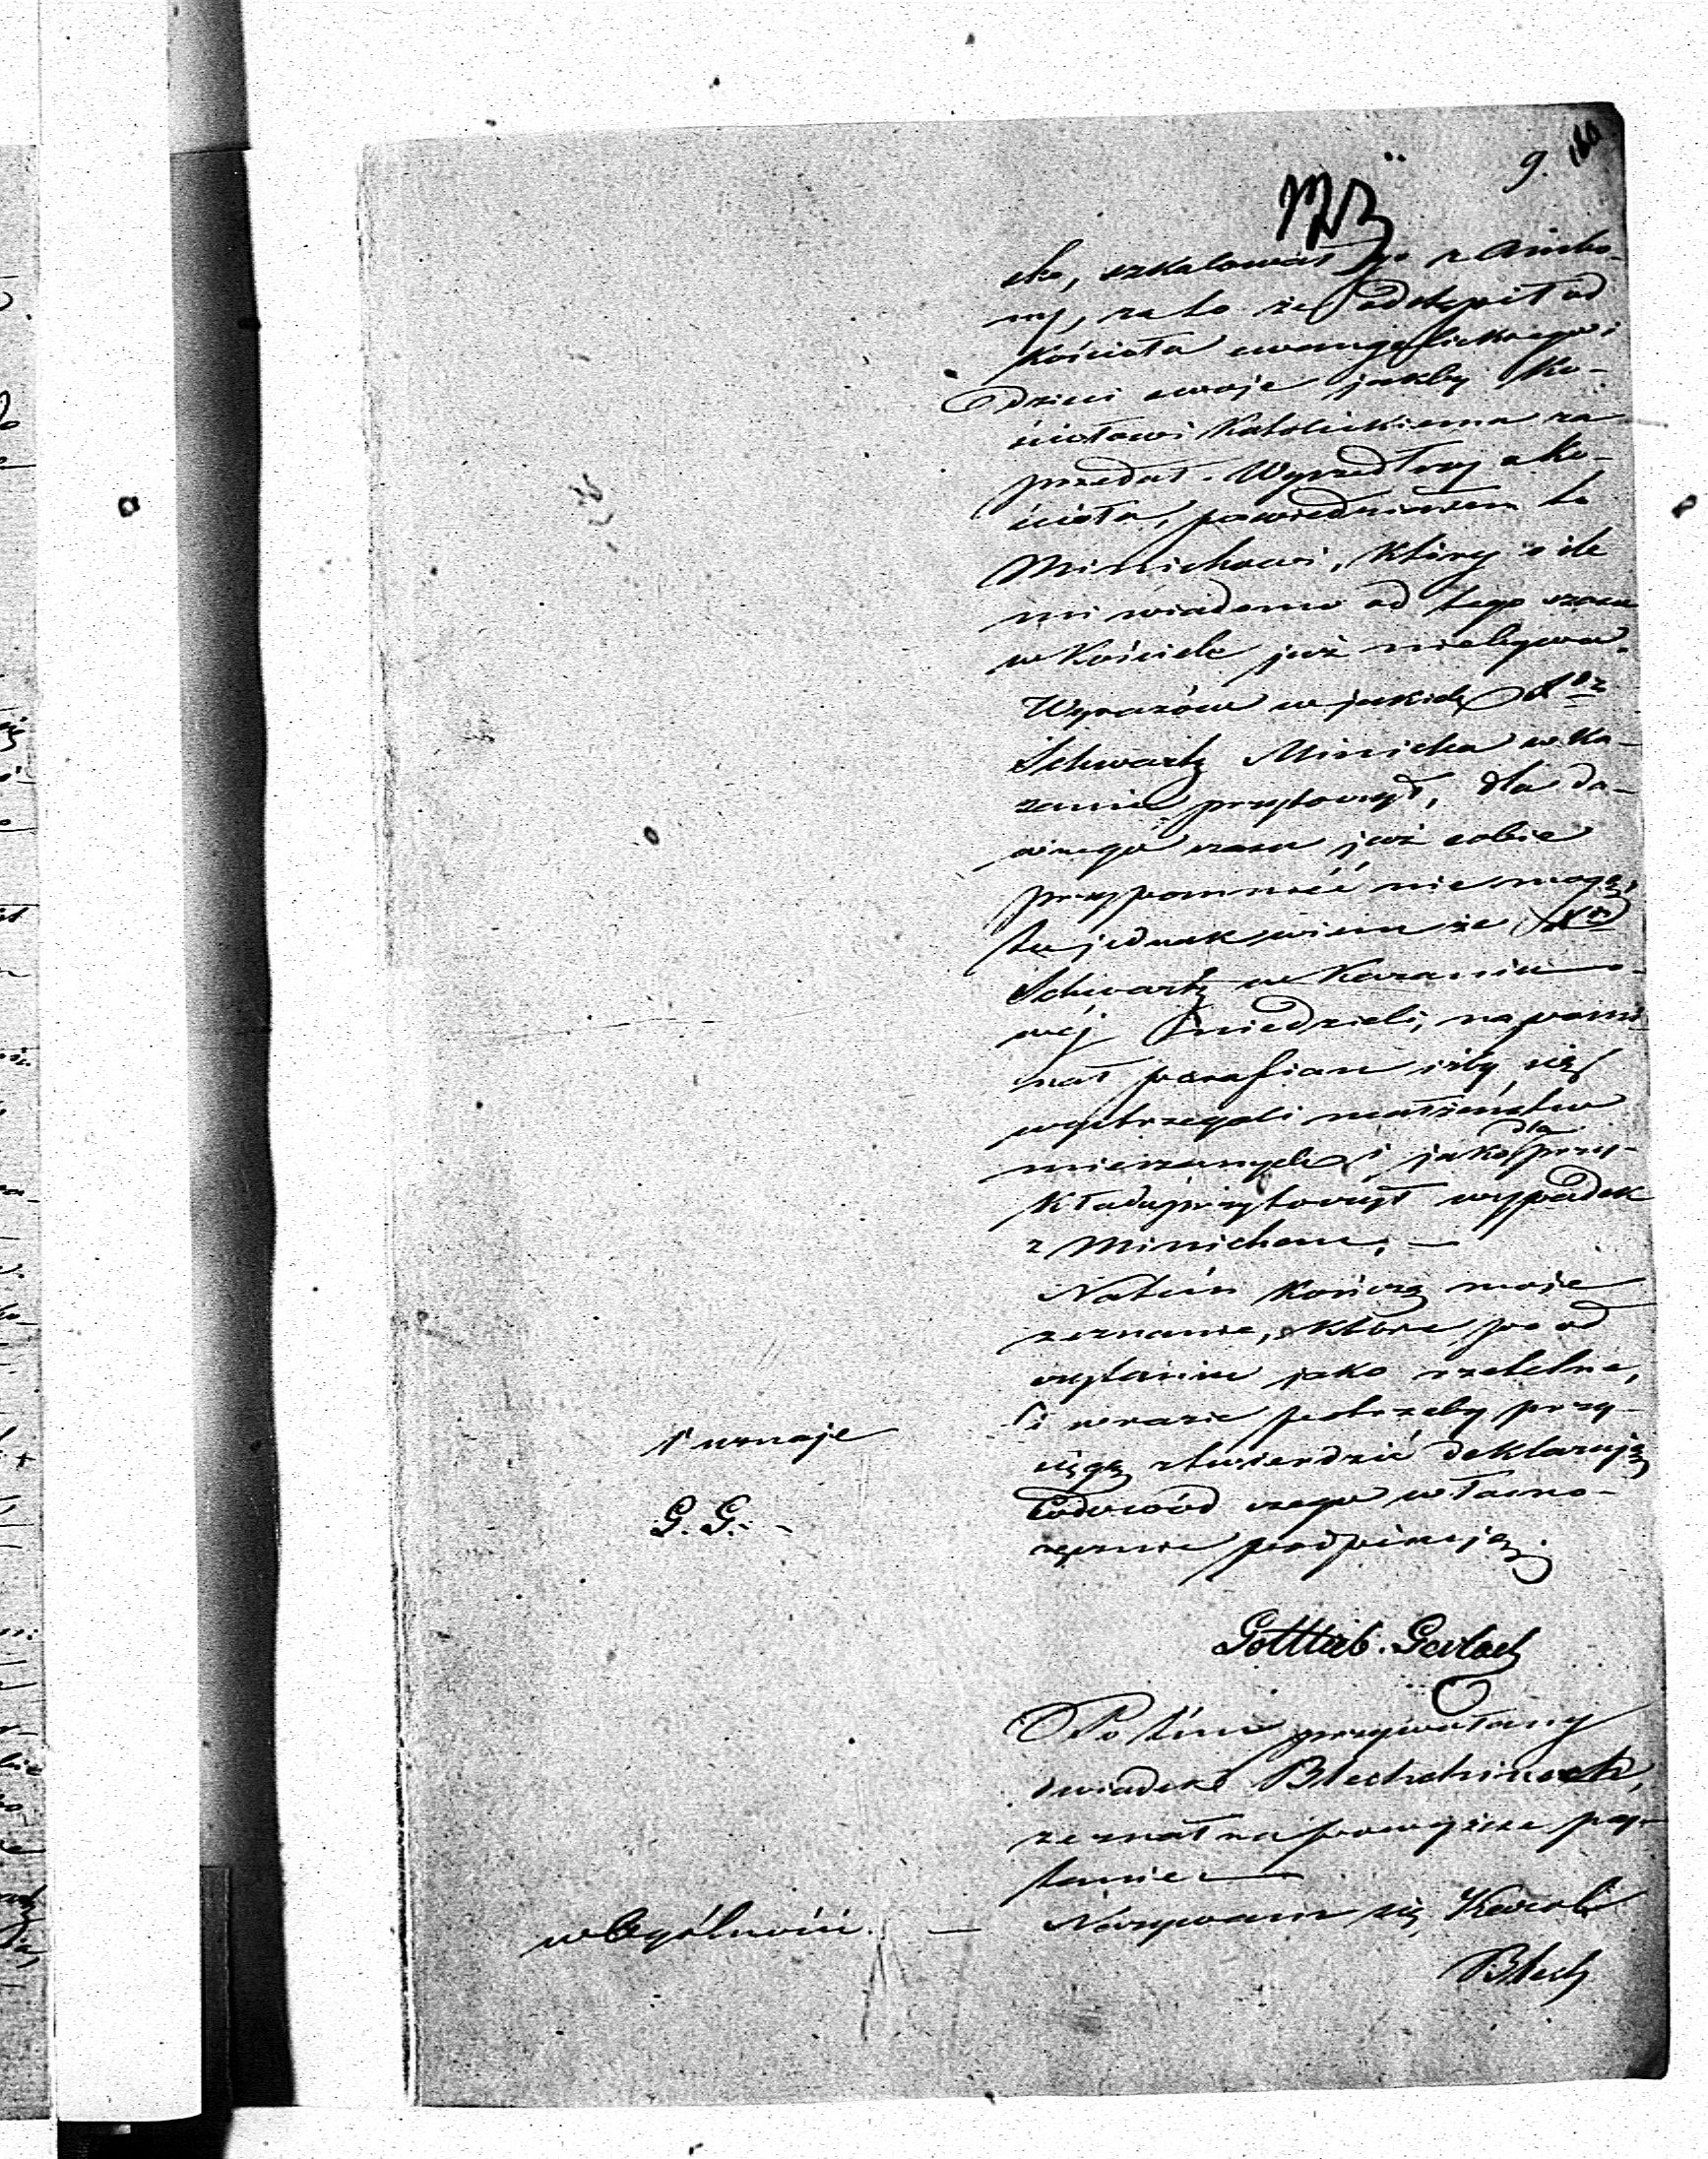 9. 160
cko, szkalował go z Ambo-
ny, za to że odstąpił od
Kościoła ewangelickiego i
dzieci swoje jakby Ko-
ściołowi Katolickiemu za
przedał. Wyszedłszy z Ko-
ścioła, powiedziałem to
Minichowi, który o ile
mi wiadomo od tego czasu
w Kościele już nie bywa.
Wyrazów w jakich Xdz
Schwartz Minicha w Ka-
zaniu przytoczył, dla da-
wnego czasu już sobie
przypomnieć nie mogę,
to jednak wiem że Xdz
Schwartz w Kazaniu
niedzieli, napomi
nał parafian iżby się
wystrzegali małżeństw
mieszanych i jako dla przy-
kładu przytoczył wypadek
z Minichem. —
Na tém kończę moje
zeznanie, które po od
czytaniu jako rzetelne,
i w razie potrzeby przy-
sięgą stwierdzić deklaruję
Co dowód czego własno-
ręcznie podpisuję.
i uznaje
G. G.
Gottlieb Gerlach
Po tém przywołany
świadek Blechschmidt,
zeznał na powyższe py-
tanie —
w Ogólności. — Nazywam się Karol
Blech